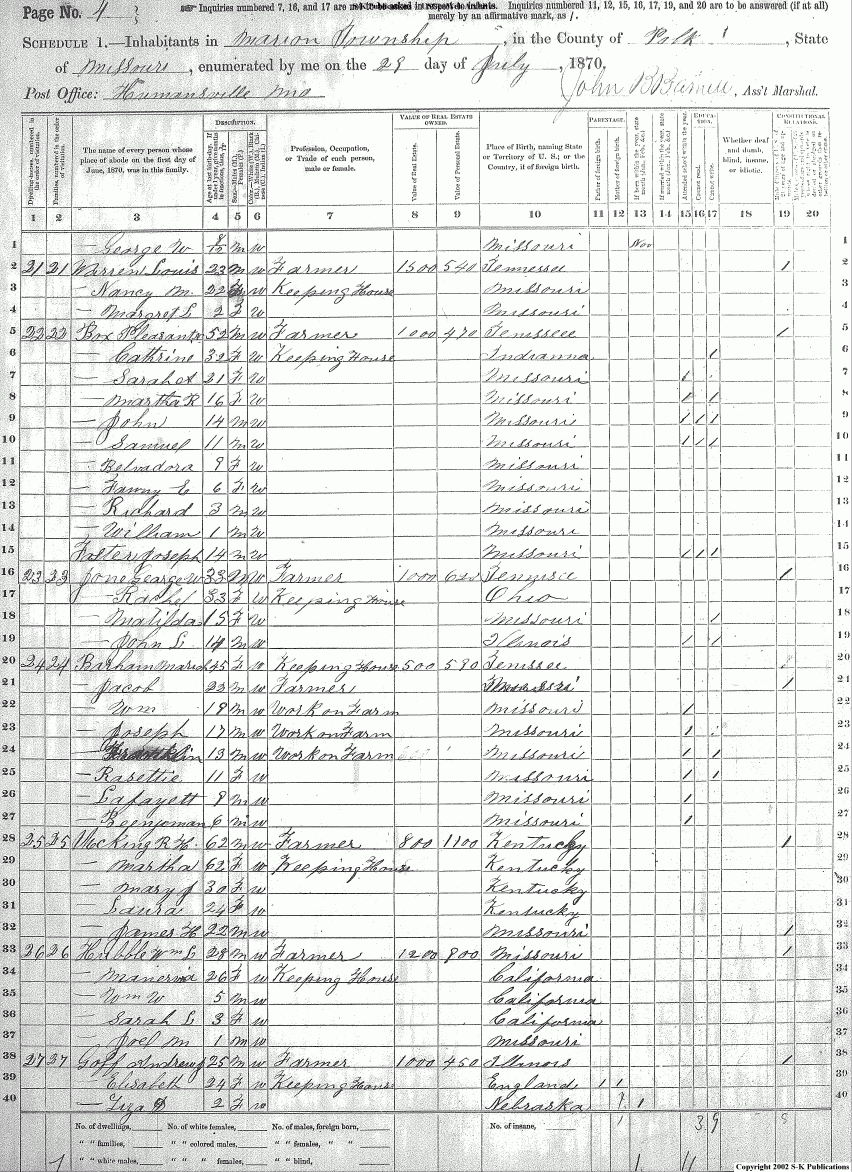 Page No. 4
Inquiries numbered 7, 16, and 17 are not to be asked in respect to infants. Inquiries numbered 11, 12, 15, 16, 17, 19, and 20 are to be answered (if at all)
merely by an affirmative mark, as /.
SCHEDULE 1.—Inhabitants in Marion Township, in the County of Polk, State
of Missouri, enumerated by me on the 28 day of July, 1870.
Post Office: Humansville Mo John B, Ass't Marshal.
DESCRIPTION. VALUE OF REAL ESTATE OWNED. PARENTAGE. EDUCATION. CONSTITUTIONAL RELATIONS.
Dwelling-houses, numbered in the order of visitation.
Families, numbered in the order of visitation.
The name of every person whose place of abode on the first day of June, 1870, was in this family.
Profession, Occupation, or Trade of each person, male or female.
Value of Real Estate.
Value of Personal Estate.
Place of Birth, naming State or Territory of U. S.; or the Country, if of foreign birth.
Father of foreign birth.
Mother of foreign birth.
Attended school within the year.
Cannot read.
Cannot write.
Whether deaf and dumb, blind, insane, or idiotic.
1 2 3 4 5 6 7 8 9 10 11 12 13 14 15 16 17 18 19 20
1 — George W 8/12 M W Missouri Nov 1
2 21 21 Warren Louis 23 M W Farmer 1500 540 Tennessee / 2
3 — Nancy M. 22 F W Keeping House Missouri 3
4 — Margret L 2 F W Missouri 4
5 22 22 Box Pleasant 52 M W Farmer 1000 470 Tenissee / 5
6 — Cathrine 32 F W Keeping House Indianna / 6
7 — Sarah A 21 F W Missouri / 7
8 — Martha R 16 F W Missouri / / 8
9 — John 14 M W Missouri / / / 9
10 — Samuel 11 M W Missouri / / / 10
11 — Belvadora 9 F W Missouri 11
12 — Fanny E 6 F W Missouri 12
13 — Richard 3 M W Missouri 13
14 — William 1 M W Missouri 14
15 Folter Joseph 14 M W Missouri / / / 15
16 23 23 Jone George W 33 M W Farmer 1000 Tenissee / 16
17 — Rachel 33 F W Keeping House Ohio 17
18 — Matilda 15 F W Missouri / 18
19 — John L 14 M W Illinois / / 19
20 24 24 Barham 45 F W Keeping House 500 580 Tenissee 20
21 — Jacob 23 M W Farmer Missouri / 21
22 — Wm 19 M W Work on Farm Missouri / 22
23 — Joseph 17 M W Work on Farm Missouri / / 23
24 — Franklin 13 M W Work on Farm Missouri / / 24
25 — Rasettie 11 F W Missouri / / 25
26 — Lafayett 9 M W Missouri / 26
27 — Beenjoman 6 M W Missouri / 27
28 25 25 R H. 62 M W Farmer 800 1100 Kentucky / 28
29 — Martha 62 F W Keeping House Kentucky 29
30 — Mary J 30 F W Kentucky 30
31 — Laura 24 F W Kentucky 31
32 — James H 22 M W Missouri / 32
33 26 26 Hubble Wm L 28 M W Farmer 1200 800 Missouri / 33
34 — Manervia 26 F W Keeping House California 34
35 — Wm W 5 M W California 35
36 — Sarah L 3 F W California 36
37 — Joel M 1 M W Missouri 37
38 27 27 Goff Andrew J 25 M W Farmer 1000 450 Illinois / 38
39 — Elisabeth 24 F W Keeping House England / / 39
40 — Liza 2 F W Nebraska / / 40
No. of dwellings, No. of white females, No. of males, foreign born, No. of insane, 3 9
" " families, " " colored males, " " females, " "
" " white males, " " " females, " " blind,
Copyright 2002 S-K Publications